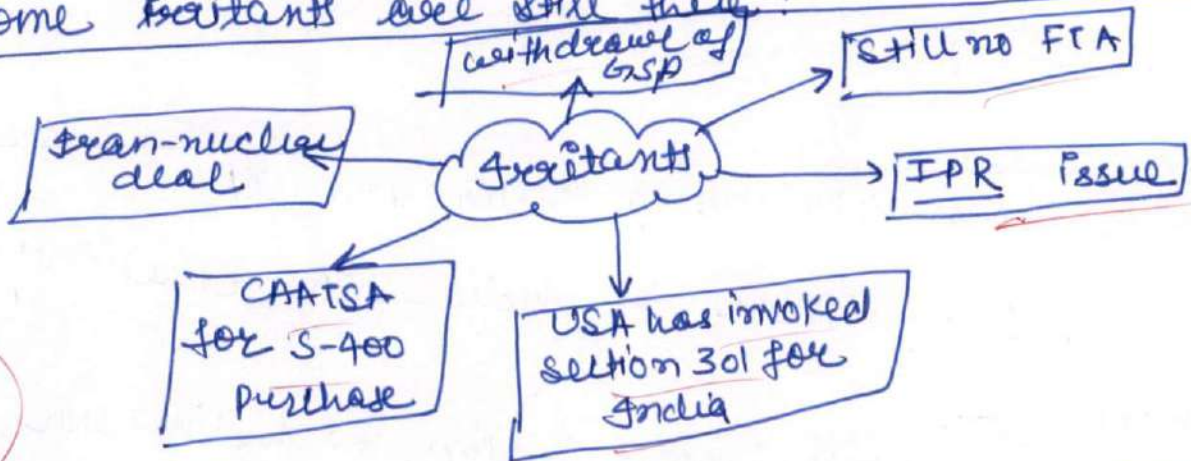 ome Irritants are still there.
withdrawl of
GSP
Still no FTA
Iran-nuclear
deal
Irritants
IPR issue
CAATSA
for S-400
purchase
USA has invoked
section 301 for
India